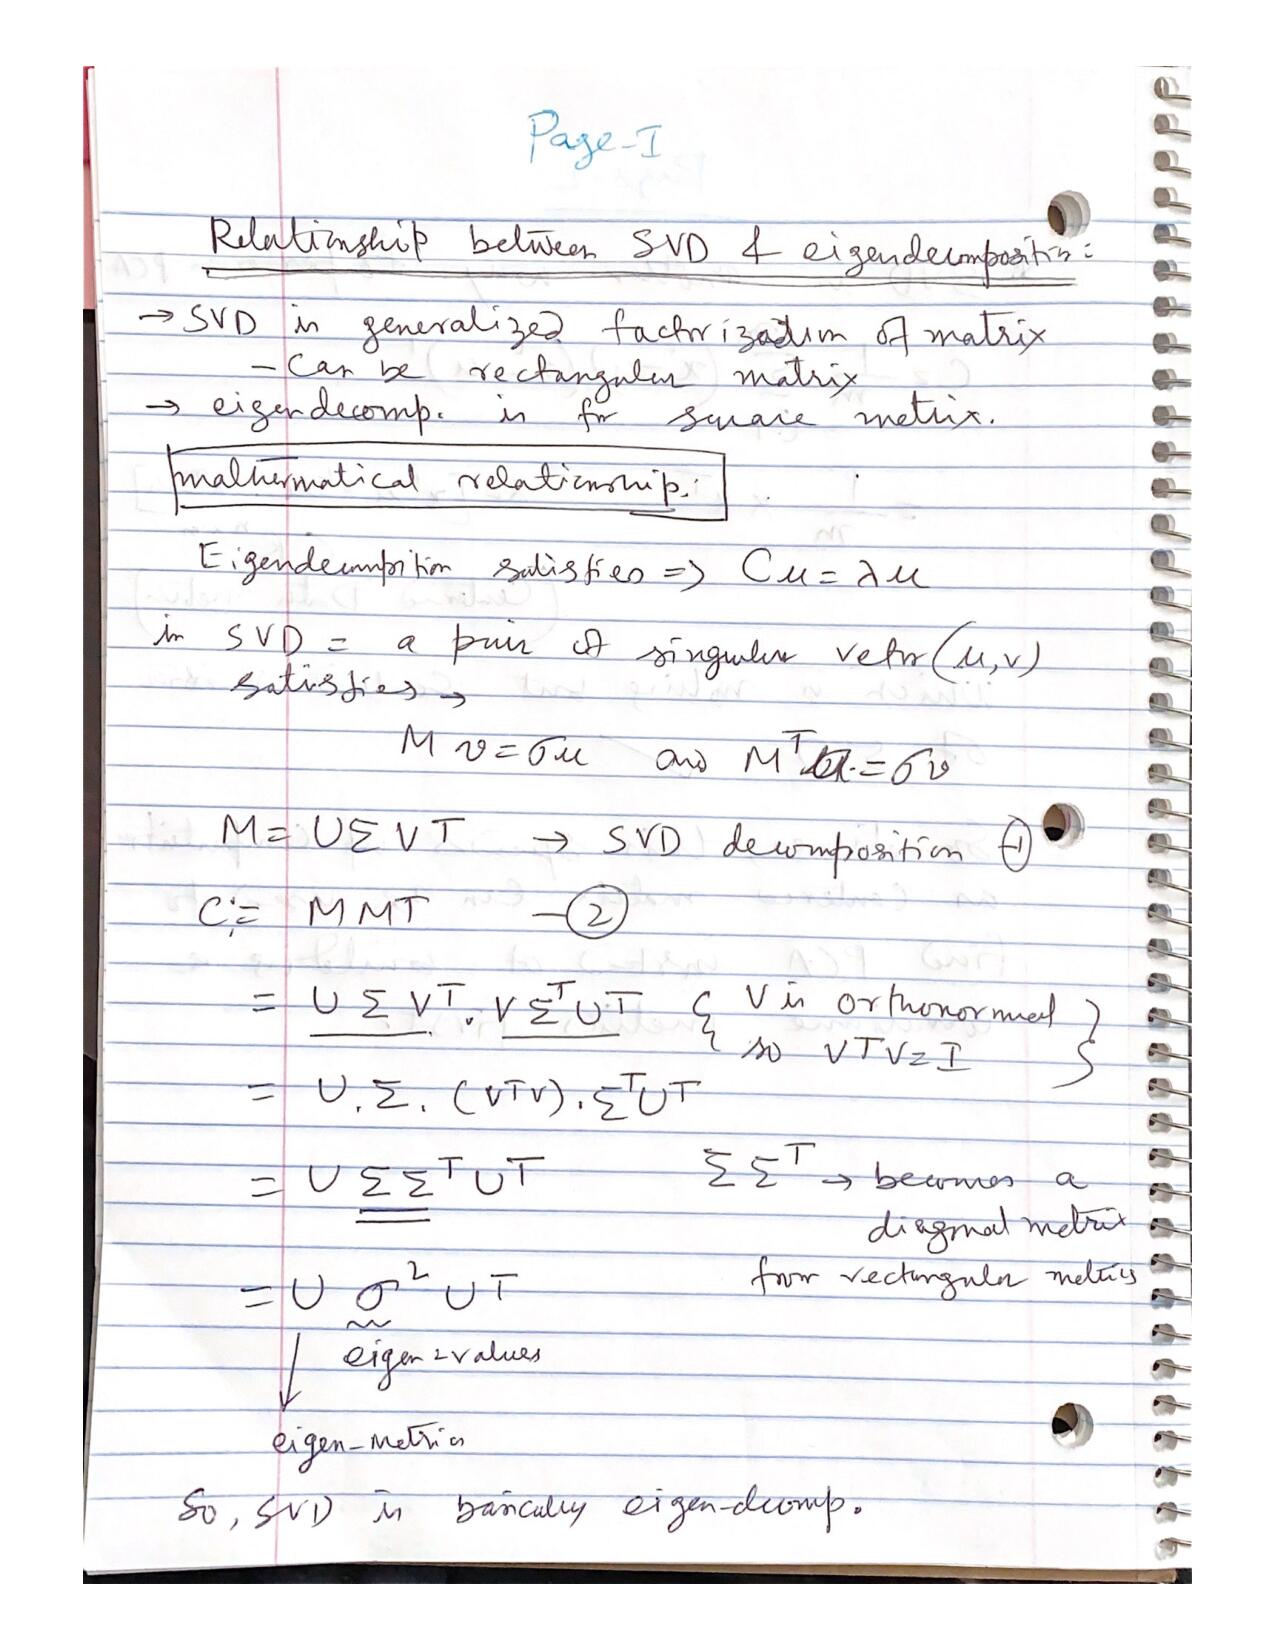 Page-I
Relationship between SVD & eigendecomposition:
→ SVD is generalized factorization of matrix
- Can be rectangular matrix
→ eigendecomp. is for square metrix.
mathematical relationship:
Eigendecomposition satisfies => Cu = λu
in SVD = a pair of singular vector (u,v)
satisfies →
Mv = σu and Mᵀu = σv
M = UΣVᵀ → SVD decomposition ①
C = MMᵀ - ②
= UΣVᵀ . VΣᵀUᵀ { V is orthonormal
so VᵀV = I }
= U.Σ.(VᵀV).ΣᵀUᵀ
= UΣΣᵀUᵀ ΣΣᵀ → becomes a
diagonal metrix
= U σ² Uᵀ from rectangular metrics
eigen-values
eigen-metrics
So, SVD is basically eigen-decomp.